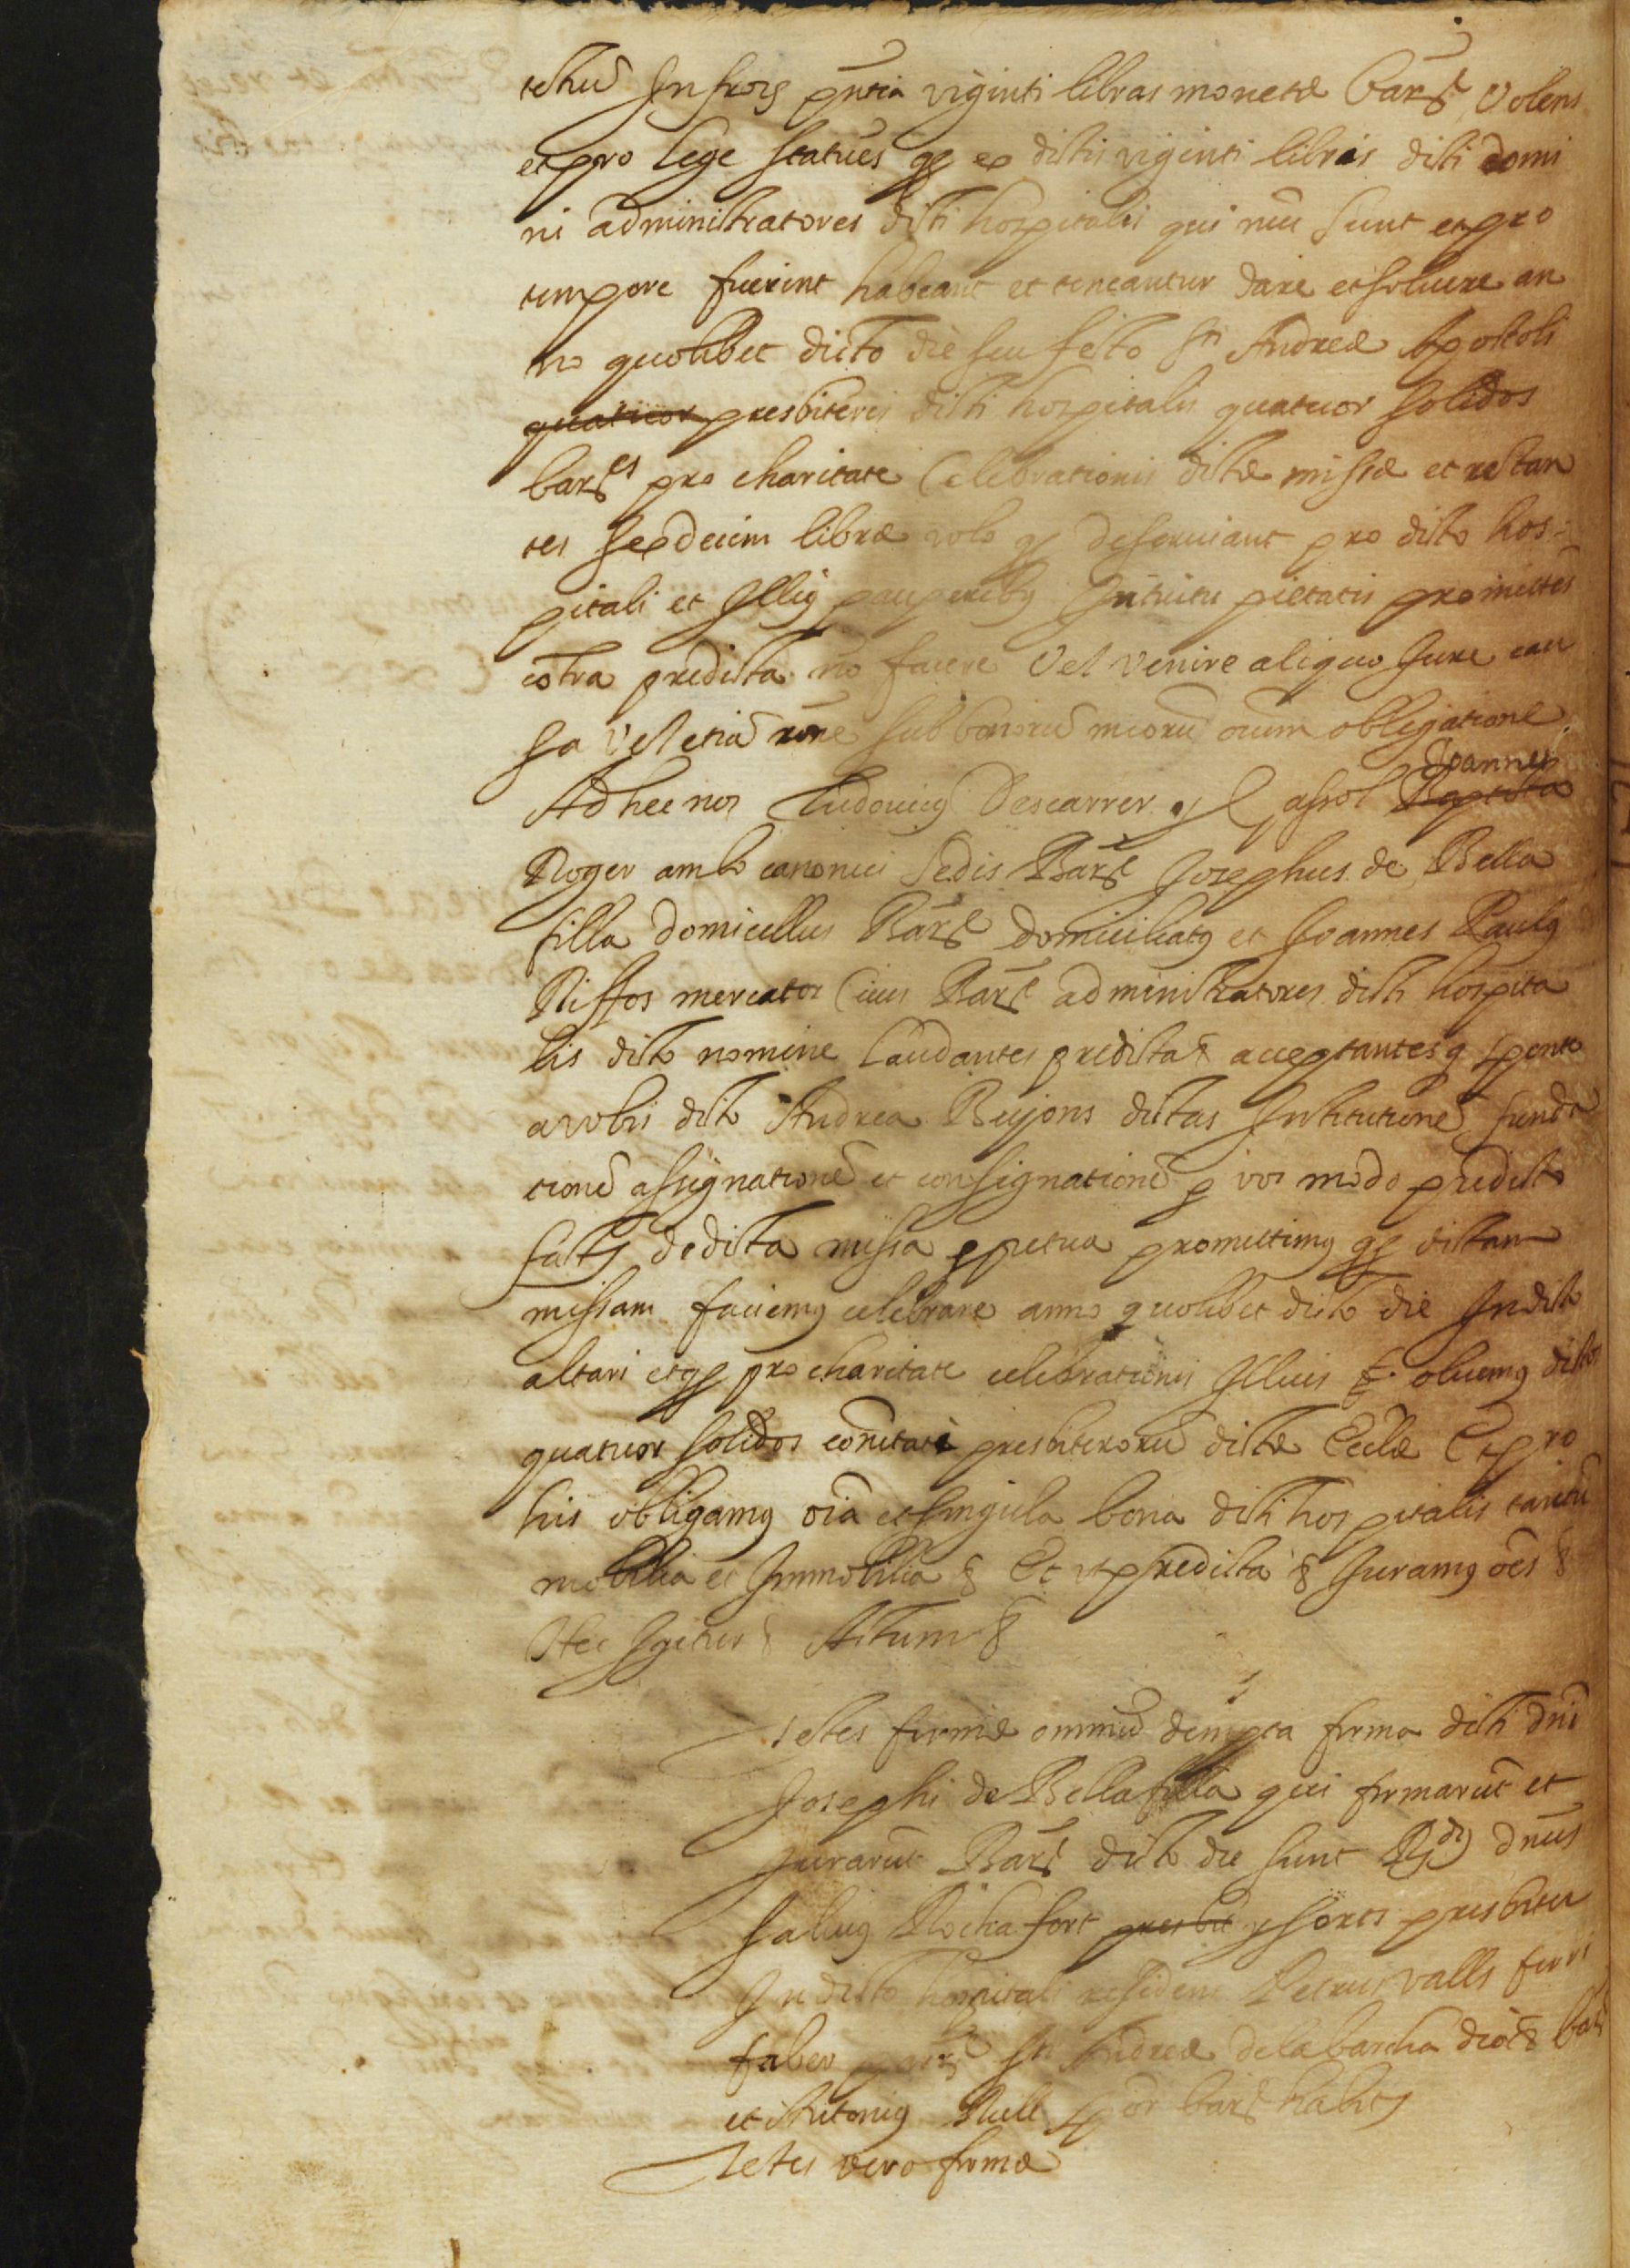 testiu Infrõs pñtia viginti libras monetæ barẽ Volens
et pro lege statues q̃ ex dictis viginti libris dicti domi
ni administratores dicti hospitalis qui nũc sunt et pro
tempore fuerint habeant et teneantur dare et soluere an
no quolibet dicto die seu festo Sti Andreæ Apostoli
quatuor presbiteris dicti hospitalis quatuor solidos
barẽs pro charitate Celebrationis dictæ missæ et restan
tes sexdecim libræ volo q̃ deseruiant pro dicto hos-
pitali et Illius pauperibus Intuitu pietatis promittes
cõtra predicta nõ facere Vel venire aliquo Jure cau
sa Vel etiã rõne sub bonorũ meorũ oium obligatione.
Ad hec nos Ludouicus Descarrer y Çassol Joannes Baptista
Roger ambo canonici Sedis Barẽ Josephus de Bella
filla domicellus Barẽ domiciliatus et Joannes Paulus
Riffos mercator Ciuis Barẽ administratores dicti hospita
lis dicto nomine Laudantes predicta & acceptantesq sponte
a vobis dicto Andrea Bujons dictas Institutionẽ funda
tionẽ assignationẽ et consignationẽ p vos modo predicto
factas de dicta missa ppetua promittimus q̃ dictam
missam faciemus celebrare anno quolibet dicto die In dicto
altari et q̃ pro charitate celebrationis Illius soluemus dictos
quatuor solidos cõnitati presbiterorũ dictæ Ecclæ Et pro
his obligamus oia et singula bona dicti hospitalis tantũ
mobilia et Immobilia & Et vt predicta & Juramus oẽs &
Hec Igitur & Actum &
Testes firmæ omniũ dempta firma dicti dñi
Josephi de Bellafilla qui firmarũt et
Jurarũt Barẽ dicto die sunt Rdus dñus
Saluius Rochafort presbit y sorts presbiter
In dicto hospitali residens Petrus valls ferri
faber Sti Andreæ de la barcha dioc& barẽ
et Antonius Rull barẽ habits
Testes vero firmæ